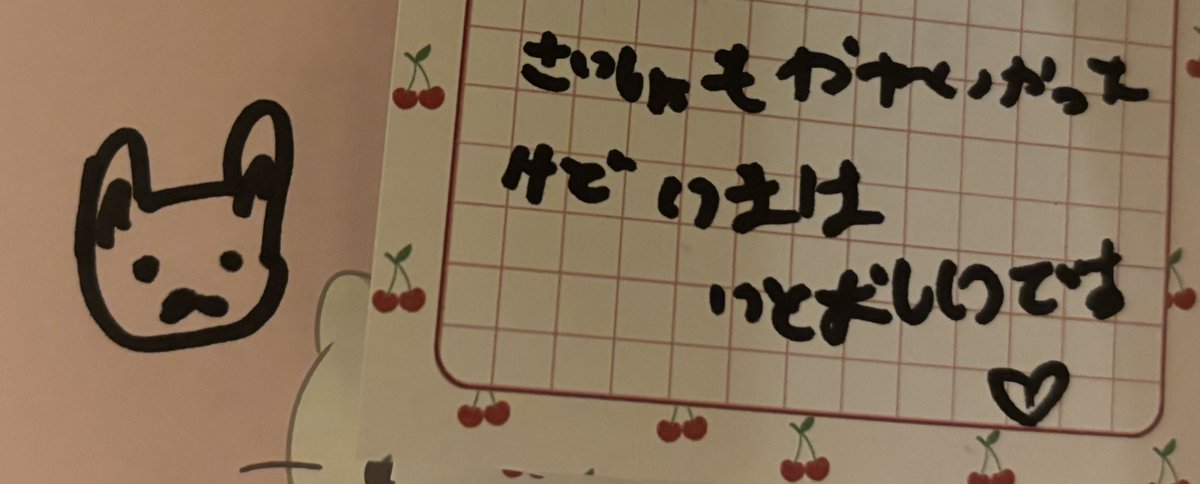 さいしょもかわいかった
けど いまは
いとおしいです